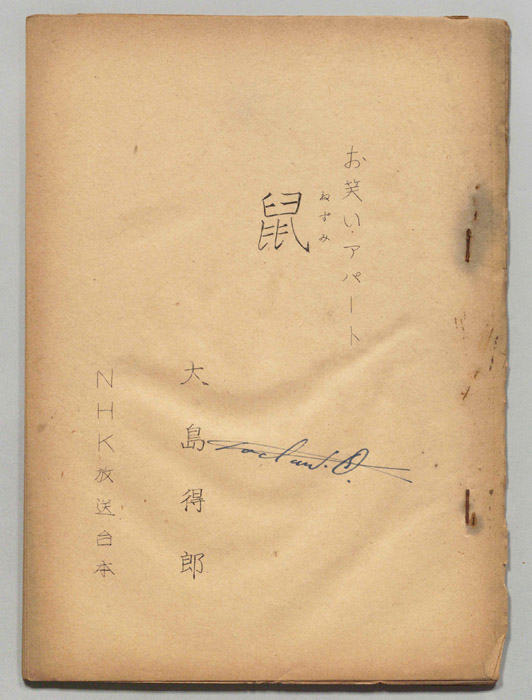 お笑い・アパート
ねずみ
鼠
大島得郎
NHK放送台本